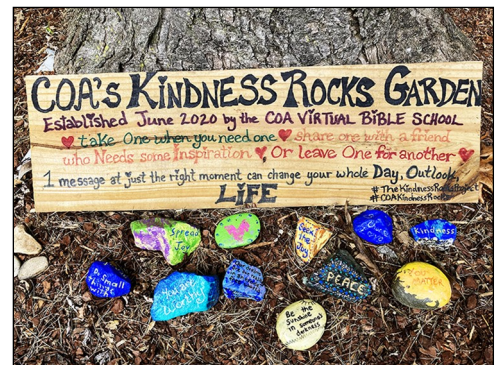 COA'S KINDNESS ROCKS GARDEN
Established June 2020 by the COA VIRTUAL BIBLE SCHOOL
take One when you need one share one with a friend
who Needs some Inspiration, Or leave One for another
1 message at just the right moment can change your whole Day, Outlook,
LIFE
#TheKindnessRocksProject
#COAKindnessRocks
Spread
Joy
Seek
the
Joy
Kindness
Do Small
things
with
You are
Worthy
PEACE
YOU
MATTER
Be the
Sunshine
in someone's
darkness